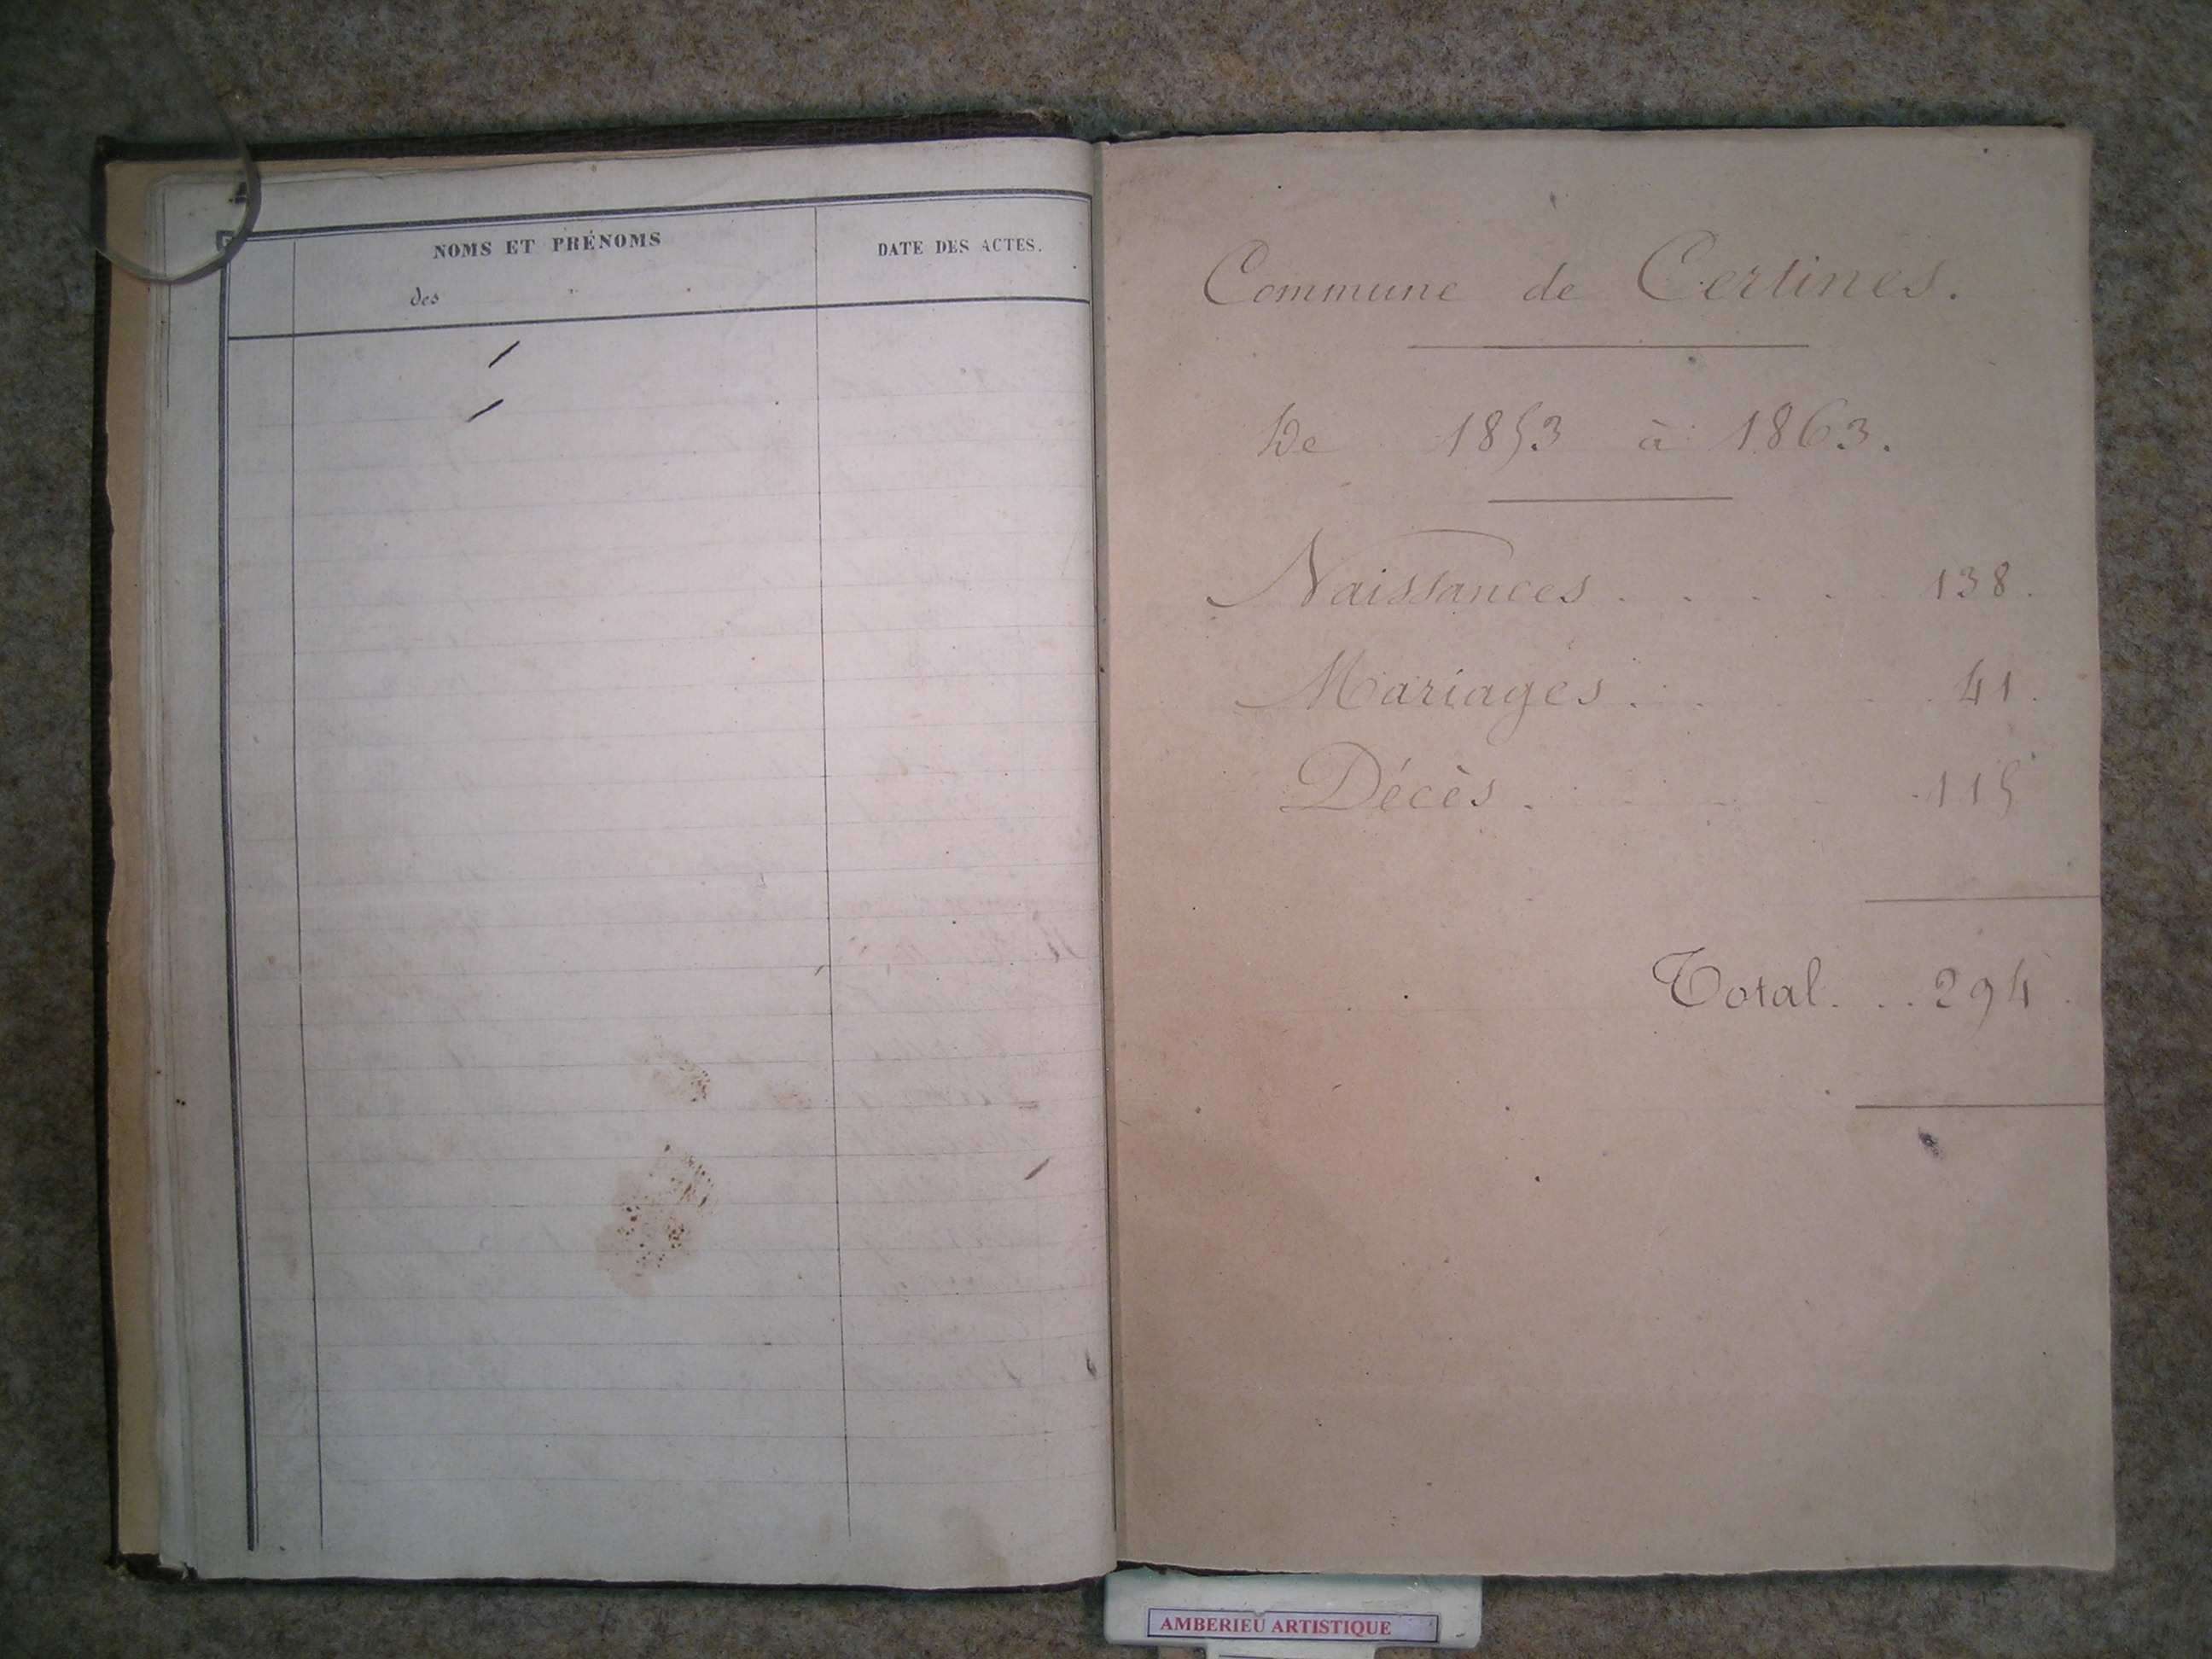 NOMS ET PRÉNOMS
des
DATE DES ACTES.
Commune de Certines.
De 1853 à 1863.
Naissances . . . . . 138.
Mariages . . . . 41.
Décès . . . . 115
Total . . . 294.
AMBERIEU ARTISTIQUE